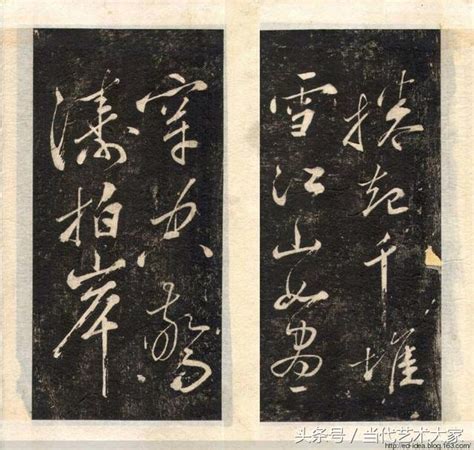 穿空驚
濤拍岸
捲起千堆
雪江山如畫
头条号 / 当代艺术大家
http://ed-idea.blog.163.com/